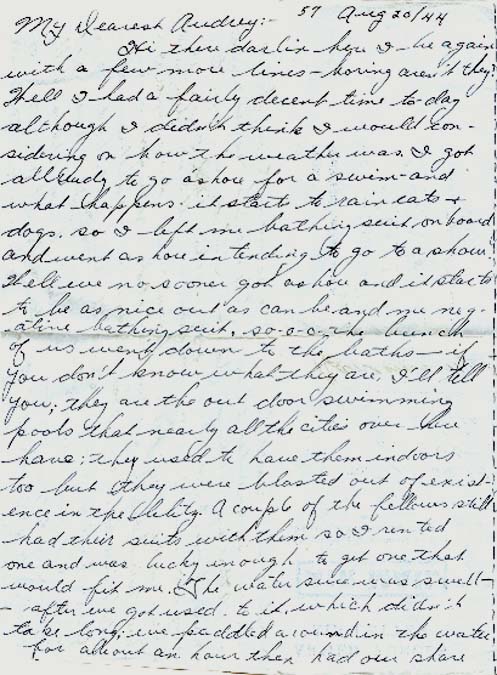 57 Aug 20/44
My Dearest Audrey:-
Hi there darlin here I be again
with a few more lines - boring aren't they?
Well I had a fairly decent time to-day
although I didn't think I would con-
sidering on how the weather was. I got
all ready to go ashore for a swim - and
what happens it starts to rain cats +
dogs. so I left me bathing suit on board
and went ashore intending to go to a show.
Well we no sooner got ashore and it starts
to be as nice out as can be and me neg-
ative bathing suit. so-o-o- the bunch
of us went down to the baths - if
you don't know what they are, I'll tell
you; they are the out door swimming
pools that nearly all the cities over here
have; they used to have them indoors
too but they were blasted out of exist-
ence in the. A couple of the fellows still
had their suits with them so I rented
one and was lucky enough to get one that
would fit me. The water sure was swell -
- after we got used to it. which didn't
take long; we paddled around in the water
for about an hour then had our share